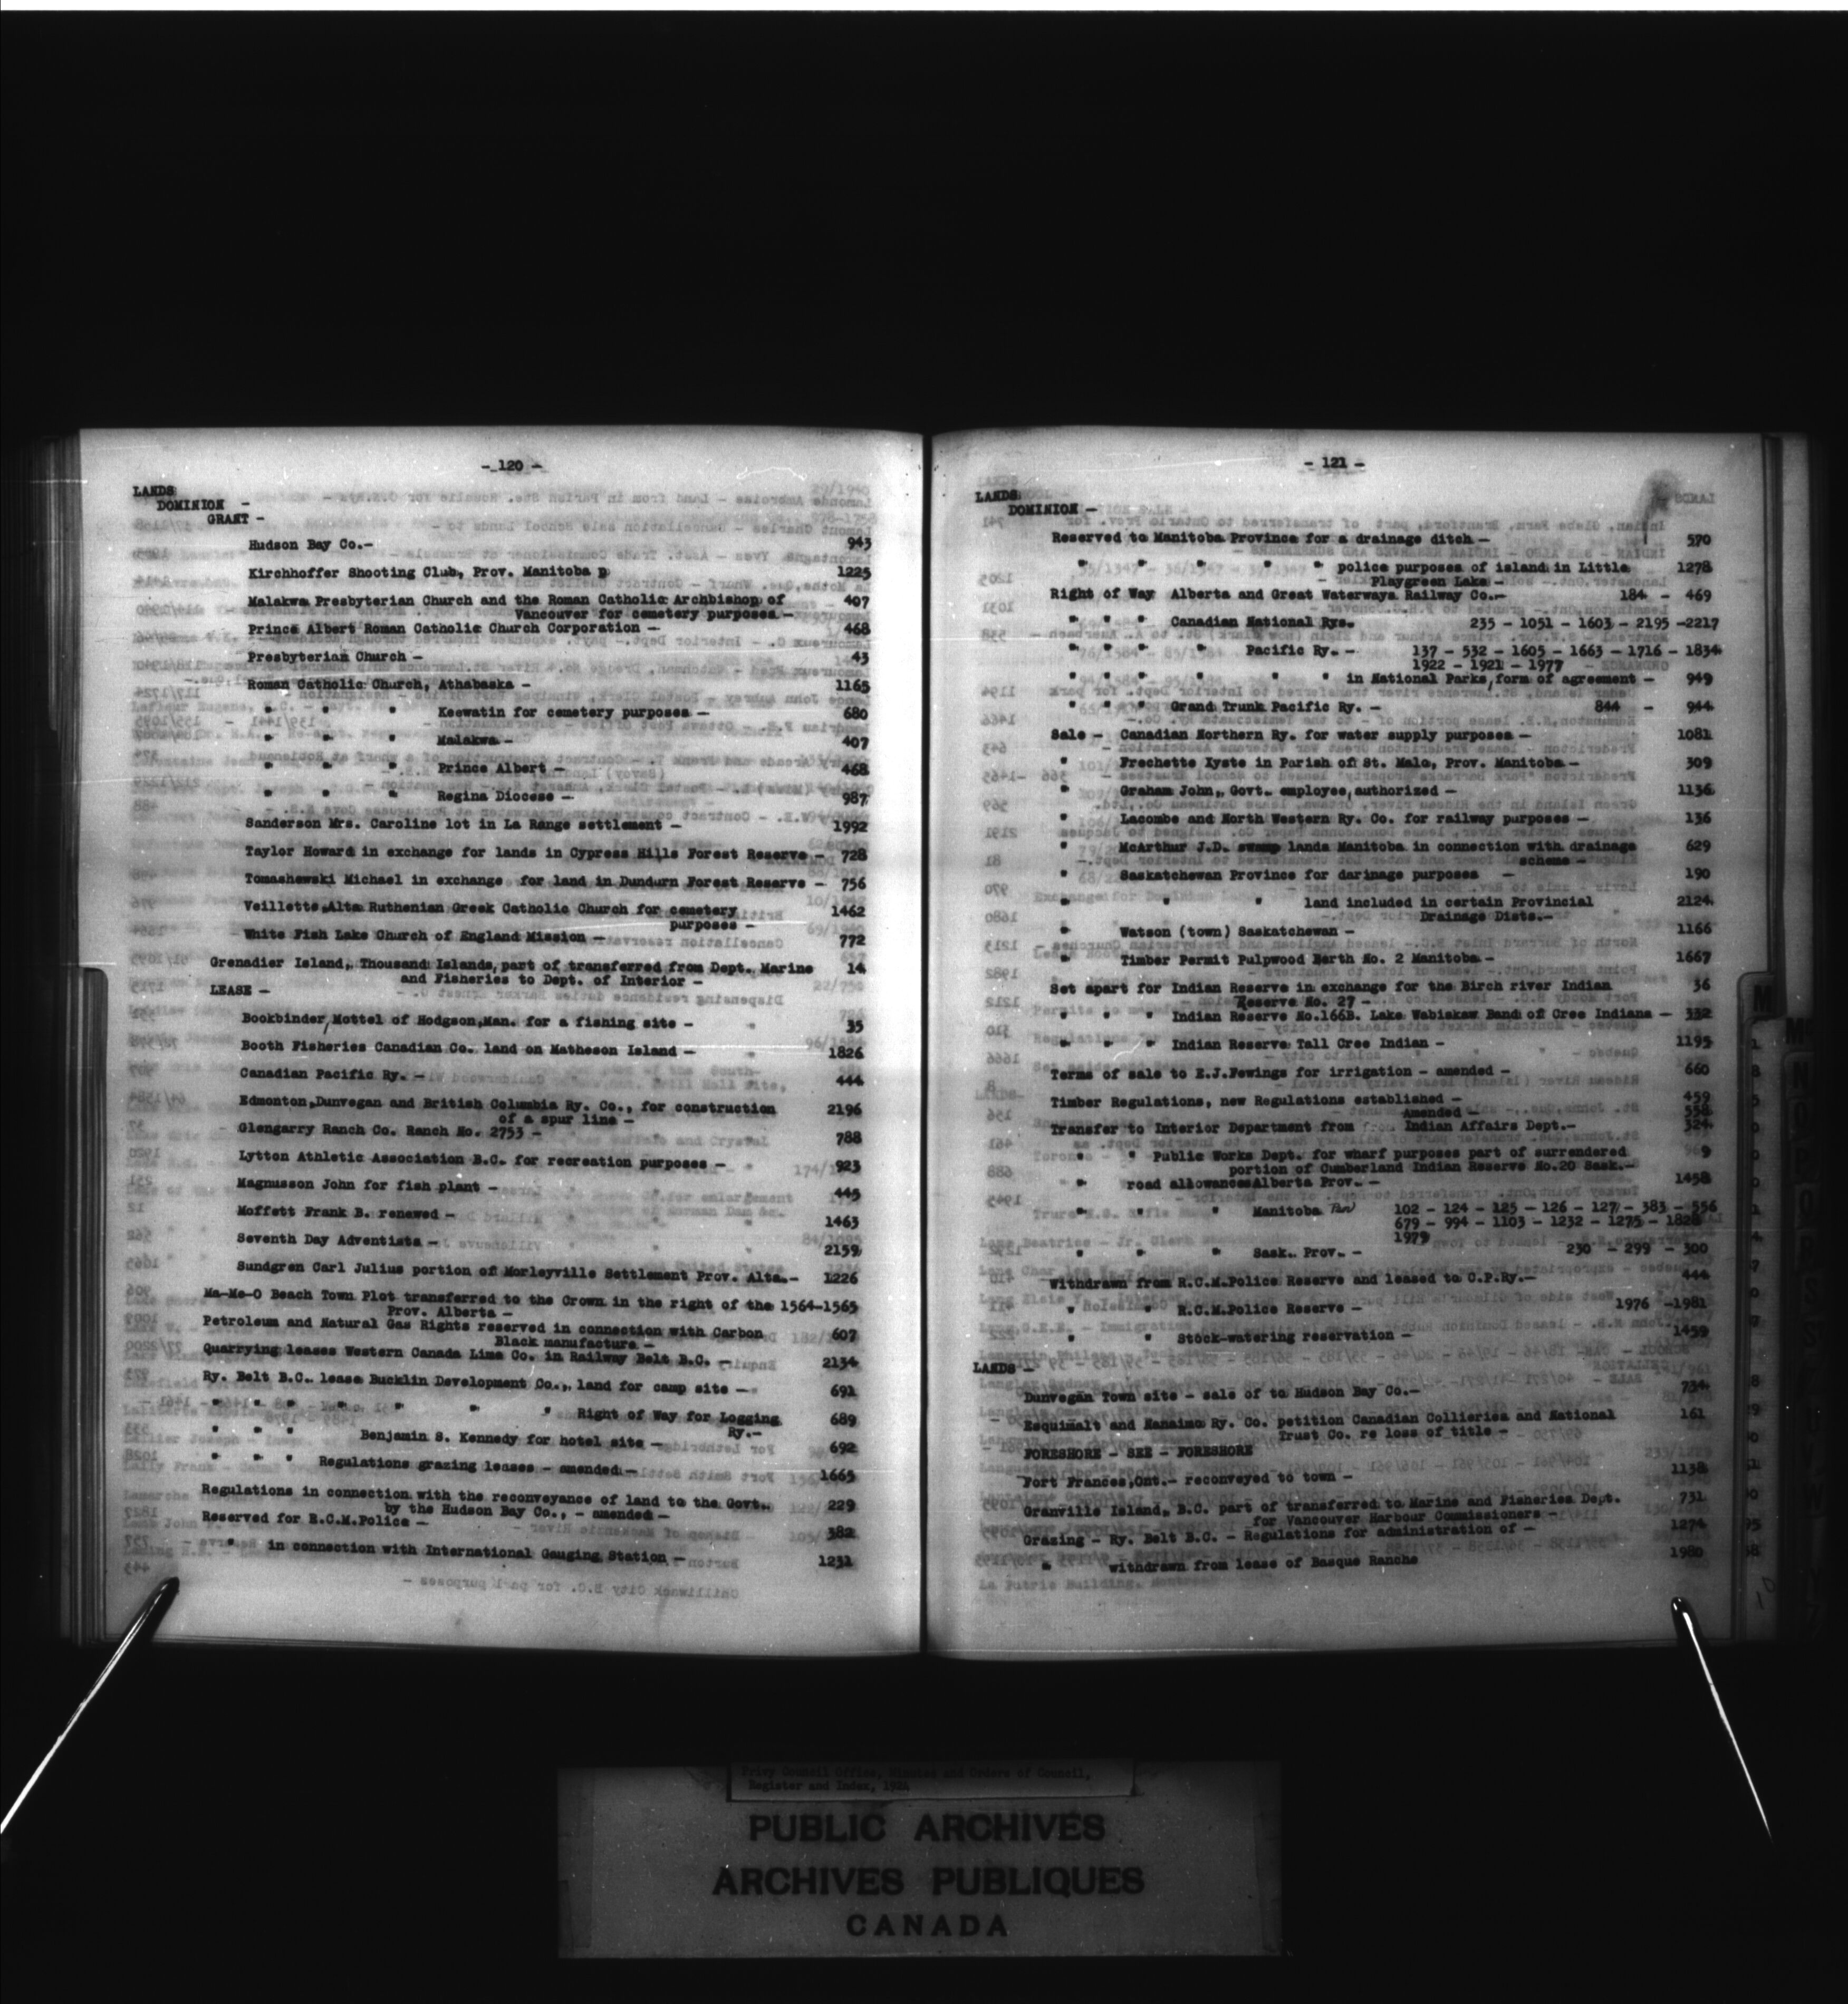 - 120 -
LANDS
DOMINION -
GRANT -
Hudson Bay Co.- 943
Kirchhoffer Shooting Club, Prov. Manitoba p 1225
Malakwa Presbyterian Church and the Roman Catholic Archbishop of 407
Vancouver for cemetery purposes -
Prince Albert Roman Catholic Church Corporation - 468
Presbyterian Church - 43
Roman Catholic Church, Athabaska - 1165
" " " Keewatin for cemetery purposes - 680
" " " Malakwa - 407
" " " Prince Albert - 468
" " " Regina Diocese - 987
Sanderson Mrs. Caroline lot in La Range settlement - 1992
Taylor Howard in exchange for lands in Cypress Hills Forest Reserve - 728
Tomashewski Michael in exchange for land in Dundurn Forest Reserve - 756
Veillette,Alta Ruthenian Greek Catholic Church for cemetery 1462
purposes -
White Fish Lake Church of England Mission - 772
Grenadier Island, Thousand Islands,part of transferred from Dept. Marine 14
and Fisheries to Dept. of Interior -
LEASE -
Bookbinder,Mottel of Hodgson,Man. for a fishing site - 35
Booth Fisheries Canadian Co. land on Matheson Island - 1826
Canadian Pacific Ry. - 444
Edmonton,Dunvegan and British Columbia Ry. Co., for construction 2196
of a spur line -
Glengarry Ranch Co. Ranch No. 2753 - 788
Lytton Athletic Association B.C. for recreation purposes - 923
Magnusson John for fish plant - 445
Moffett Frank B. renewed - 1463
Seventh Day Adventists - 2159
Sundgren Carl Julius portion of Morleyville Settlement Prov. Alta.- 1226
Ma-Me-O Beach Town Plot transferred to the Crown in the right of the 1564-1565
Prov. Alberta -
Petroleum and Natural Gas Rights reserved in connection with Carbon 607
Black manufacture -
Quarrying leases Western Canada Lime Co. in Railway Belt B.C. - 2134
Ry. Belt B.C. lease Bucklin Development Co., land for camp site - 691
" " " " " " Right of Way for Logging 689
Ry.-
" " " Benjamin S. Kennedy for hotel site - 692
" " " Regulations grazing leases - amended - 1665
Regulations in connection with the reconveyance of land to the Govt. 229
by the Hudson Bay Co., - amended -
Reserved for R.C.M.Police - 382
" in connection with International Gauging Station - 1231
- 121 -
LANDS
DOMINION -
Reserved to Manitoba Province for a drainage ditch - 570
" " " " " police purposes of island in Little 1278
Playgreen Lake -
Right of Way Alberta and Great Waterways Railway Co.- 184 - 469
" " " Canadian National Rys. 235 - 1051 - 1603 - 2195 -2217
" " " " Pacific Ry. - 137 - 532 - 1605 - 1663 - 1716 - 1834
1922 - 1921 - 1977
" " " " " " in National Parks,form of agreement - 949
" " " Grand Trunk Pacific Ry. - 844 - 944
Sale - Canadian Northern Ry. for water supply purposes - 1081
" Frechette Xyste in Parish of St. Malo, Prov. Manitoba - 309
" Graham John, Govt. employee,authorized - 1136
" Lacombe and North Western Ry. Co. for railway purposes - 136
" McArthur J.D. swamp lands Manitoba in connection with drainage 629
scheme -
" Saskatchewan Province for darinage purposes - 190
" " " land included in certain Provincial 2124
Drainage Dists.-
" Watson (town) Saskatchewan - 1166
" Timber Permit Pulpwood Berth No. 2 Manitoba - 1667
Set apart for Indian Reserve in exchange for the Birch river Indian 36
Reserve No. 27 -
" " " Indian Reserve No.166B. Lake Wabiskaw Band of Cree Indians - 332
" " " Indian Reserve Tall Cree Indian - 1195
Terms of sale to E.J.Fewings for irrigation - amended - 660
Timber Regulations, new Regulations established - 459
Amended - 558
Transfer to Interior Department from Indian Affairs Dept.- 324
" " Public Works Dept. for wharf purposes part of surrendered 9
portion of Cumberland Indian Reserve No.20 Sask.-
" road allowancesAlberta Prov.- 1458
" " " Manitoba 102 - 124 - 125 - 126 - 127 - 383 - 556
679 - 994 - 1103 - 1232 - 1275 - 1828
1979
" " " Sask. Prov. - 230 - 299 - 300
Withdrawn from R.C.M.Police Reserve and leased to C.P.Ry.- 444
" " R.C.M.Police Reserve - 1976 -1981
" " Stock-watering reservation - 1459
LANDS -
Dunvegan Town site - sale of to Hudson Bay Co.- 734
Esquimalt and Nanaimo Ry. Co. petition Canadian Collieries and National 161
Trust Co. re loss of title -
FORESHORE - SEE - FORESHORE
Fort Frances,Ont.- reconveyed to town - 1138
Granville Island, B.C. part of transferred to Marine and Fisheries Dept. 731
for Vancouver Harbour Commissioners -
Grazing - Ry. Belt B.C. - Regulations for administration of - 1274
" withdrawn from lease of Basque Ranche 1980
Privy Council Office, Minutes and Orders of Council,
Register and Index, 1924
PUBLIC ARCHIVES
ARCHIVES PUBLIQUES
CANADA